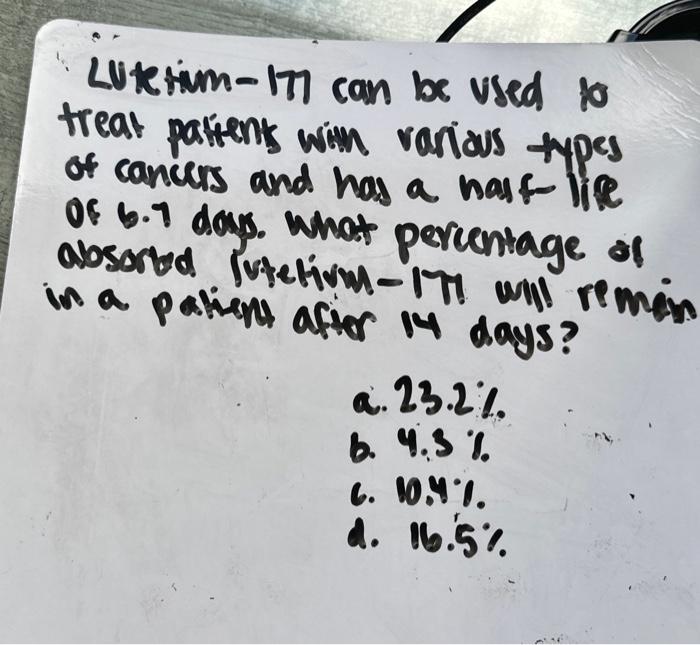 Lutetium-177 can be used to
treat patients with various types
of cancers and has a half-life
of 6.7 days. What percentage of
absorbed lutetium-177 will remain
in a patient after 14 days?
a. 23.2%.
b. 4.3 %.
c. 10.4%.
d. 16.5%.